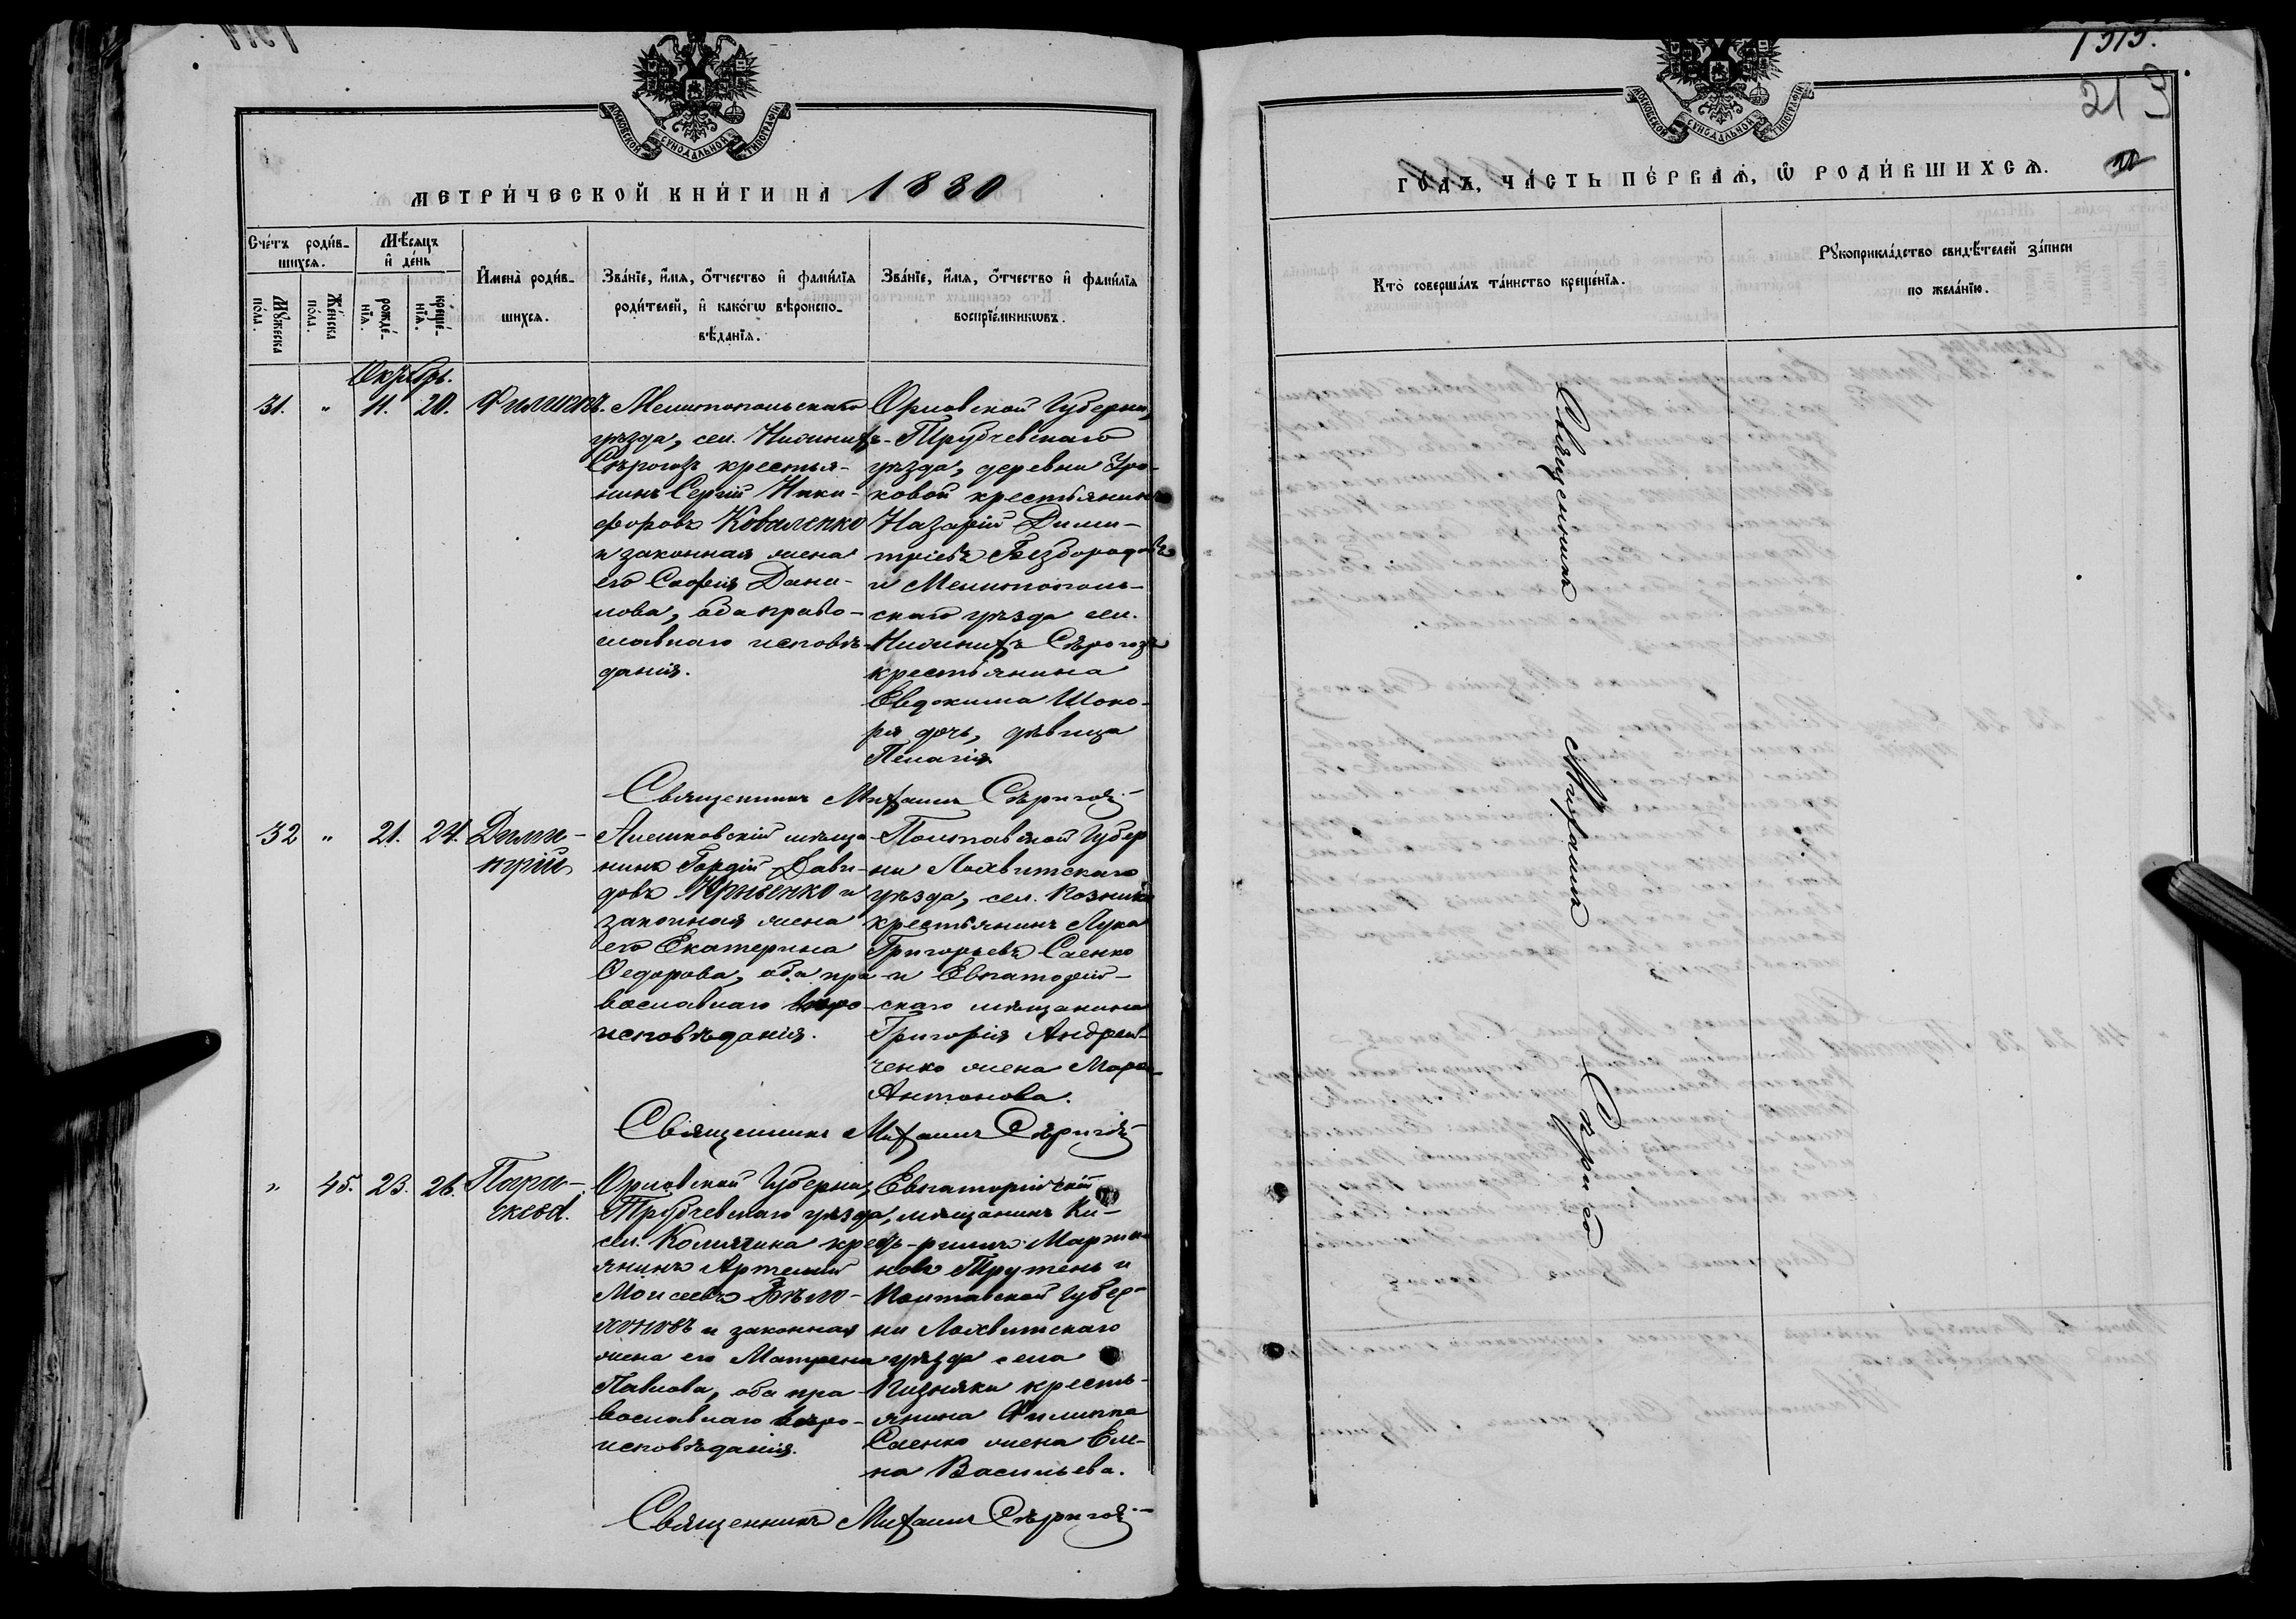 МОСКОВСКОЙ СУНОДАЛЬНОЙ ТИПОГРАФІИ
МЕТРИ́ЧЕСКОЙ КНИ́ГИ НА 1880
Сче́тъ роди́в-
шихся.
Мѣ́сяцъ
и҆ де́нь
Мꙋ́жеска
пола.
Же́нска
по́ла.
рожде́-
нїѧ.
креще́-
нїѧ.
И҆мена̀ роди́в-
шихсѧ.
Зва́нїе, и҆́мѧ, ѻ҆́тчество и҆ фами́лїѧ
роди́телей, и҆ како́гѡ вѣроиспо-
вѣ́данїѧ.
Зва́нїе, и҆́мѧ, ѻ҆́тчество и҆ фами́лїѧ
воспрїе́мникѡвъ.
Октябрь.
31. " 11. 20. Филиппъ.
Мелитопольскаго
уѣзда, сел. Нижнихъ
Сѣрогозъ крестья-
нинъ Сергій Ники-
форовъ Коваленко
и законная жена
его Софія Дани-
лова, оба право-
славнаго исповѣ-
данія.
Орловской Губерніи,
Трубчевскаго
уѣзда, деревни
ковой крестьянинъ
Назарій Дими-
тріевъ Безбородовъ
и Мелитополь-
скаго уѣзда сел.
Нижнихъ Сѣрогозъ
крестьянина
Евдокима Шоко-
ря дочь, дѣвица
Пелагія.
Священникъ Михаилъ Сѣриковъ
32 " 21. 24. Дими-
трій
Алешковскій мѣща-
нинъ Гордій Дави-
довъ и
законная жена
его Екатерина
Ѳедорова, оба пра-
вославнаго вѣро-
исповѣданія.
Полтавской Губер
ніи Лохвитскаго
уѣзда, сел.
крестьянинъ Лука
Григорьевъ Саенко
и Евпаторій-
скаго мѣщанина
Григорія Андрей-
ченко жена
Антонова.
Священникъ Михаилъ Сѣриковъ
" 45. 23. 26. Пара-
скева.
Орловской Губерніи,
Трубчевскаго уѣзда,
сел. кресть-
янинъ Артемій
Моисеевъ
и законная
жена его Матрена
Павлова, оба пра-
вославнаго вѣро-
исповѣданія.
Евпаторійскій
мѣщанинъ Ки-
риллъ Марти-
новъ Трутень и
Полтавской Губер-
ніи Лохвитскаго
уѣзда села
кресть-
янина Филиппа
Саенко жена Еле-
на Васильева.
Священникъ Михаилъ Сѣриковъ
МОСКОВСКОЙ СУНОДАЛЬНОЙ ТИПОГРАФІИ
1313.
213
ГО́ДЪ, ЧА́СТЬ ПЕ́РВАѦ, Ѡ҆ РОДИ́ВШИХСѦ.
Кто̀ соверша́лъ та́инство креще́нїѧ.
Рꙋкоприкла́дство свидѣ́телей за́писи
по жела́нїю.
Священникъ Михаилъ Сѣриковъ